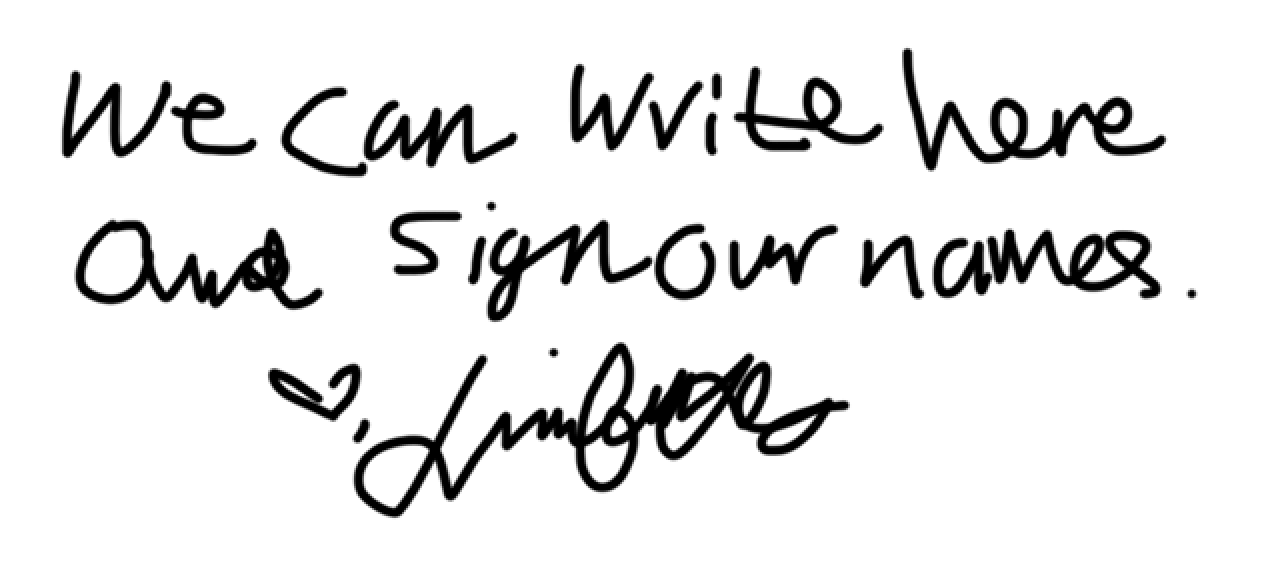 We can write here
and sign our names.